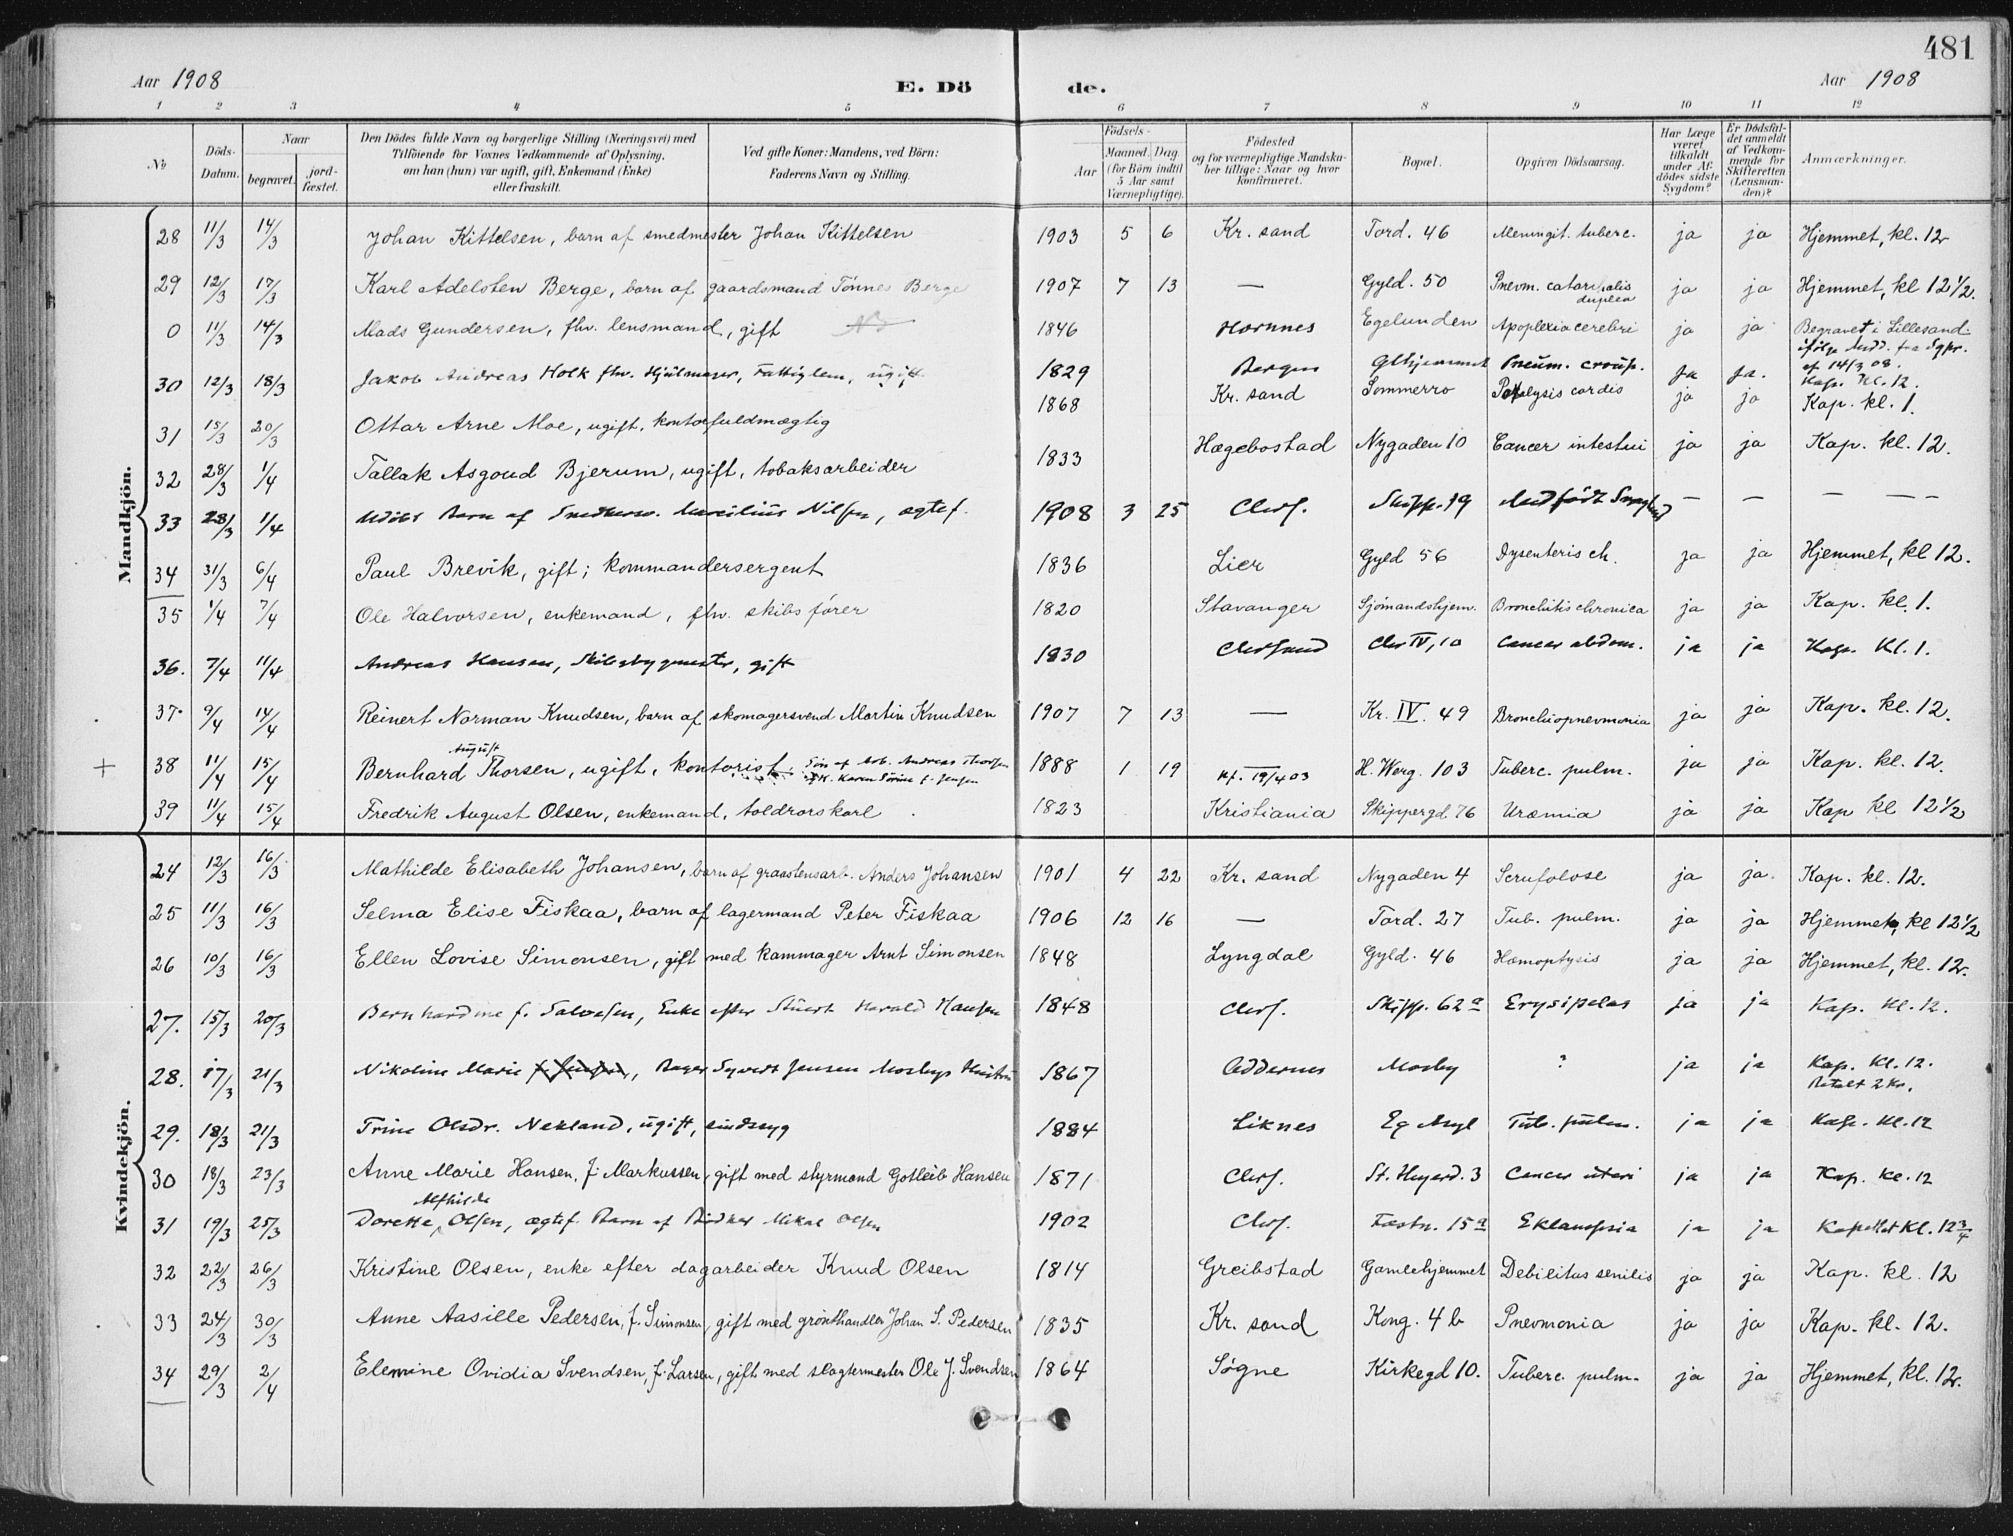 481
Aar 1908
E. Dö de.
Aar 1908
1 2 3 4 5 6 7 8 9 10 11 12
No
Döds-Datum.
Naar
begravet.
jord-fæstet.
Den Dödes fulde Navn og borgerlige Stilling (Næringsvei) med
Tilföiende for Voxnes Vedkommende af Oplysning,
om han (hun) var ugift, gift, Enkemand (Enke)
eller fraskilt.
Ved gifte Koner: Mandens, ved Börn:
Faderens Navn og Stilling.
Födsels-
Aar
Maaned. Dag
(for Börn indtil
5 Aar samt
Værnepligtige).
Födested
og for værnepligtige Mandska-
ber tillige: Naar og hvor
konfirmeret.
Bopæl.
Opgiven Dödsaarsag.
Har Læge
været
tilkaldt
under Af-
dödes sidste
Sygdom?
Er Dödsfal-
det anmeldt
af Vedkom-
mende for
Skifteretten
(Lensman-
den)?
Anmærkninger.
Mandkjön.
28 11/3 14/3 Johan Kittelsen, barn af smedmester Johan Kittelsen 1903 5 6 Kr. sand Tord. 46 Meningit. tuberc. ja ja Hjemmet, kl. 12
29 12/3 17/3 Karl Adelsten Berge, barn af gaardsmand Tönnes Berge 1907 7 13 — Gyld. 50 Pnevm. catarrhalis duplex ja ja Hjemmet, kl 12 1/2.
0 11/3 14/3 Mads Gundersen, fhv. lensmand, gift 1846 Hornnes Egelunden Apoplexia cerebri ja ja Begravet i Lillesand ifölge Medd. fra Sgpr. af 14/3 08.
30 12/3 18/3 Jakob Andreas Holk fhv. Hjulmager, Fattiglem, ugift 1829 Bergen Glhjemmet Pneum. croup. ja ja. Kap. Kl. 12.
31 15/3 20/3 Ottar Arne Moe, ugift, kontorfuldmægtig 1868 Kr. sand Sommerro Paralysis cordis ja ja Kap. kl. 1.
32 28/3 1/4 Tallak Asgoud Bjerum, ugift, tobaksarbeider 1833 Hægebostad Nygaden 10 Cancer intestini ja ja Kap. kl. 12.
33 28/3 1/4 Udöbt Barn af Snedkersv. Marcilius Nilsen, ægtef. 1908 3 25 Chrs. Skipp. 19 Medfödt — — — — —
34 31/3 6/4 Paul Brevik, gift; kommandersergent 1836 Lier Gyld 56 Dysenteris ch. ja ja Hjemmet, kl 12.
35 1/4 7/4 Ole Halvorsen, enkemand, fhv. skibsförer 1820 Stavanger Sjömandshjem. Bronchitis chronica ja ja Kap. kl. 1.
36. 7/4 11/4 Andreas Hansen, Skibsbygmester, gift 1830 Chrssand Chr IV, 10 Cancer abdom. ja ja Kap. Kl. 1.
37 9/4 14/4 Reinert Norman Knudsen, barn af skomagersvend Martin Knudsen 1907 7 13 — Kr. IV. 49 Bronchiopnevmonia ja ja Kap. kl. 12.
+ 38 11/4 15/4 Bernhard August Thorsen, ugift, kontorist, Sön af Arb. Andreas Thorsen og H. Karen Sörine f. Jensen 1888 1 19 kf. 19/4 03 H. Werg. 103 Tuberc. pulm. ja ja Kap. kl. 12.
39 11/4 15/4 Fredrik August Olsen, enkemand, toldrorskarl 1823 Kristiania Skippergd 76 Uræmia ja ja Kap kl 12 1/2
Kvindekjön.
24 12/3 16/3 Mathilde Elisabeth Johansen, barn af graastensarb. Anders Johansen 1901 4 22 Kr. sand Nygaden 4 Scrufolose ja ja. Kap. kl. 12.
25 11/3 16/3 Selma Elise Fiskaa, barn af lagermand Peter Fiskaa 1906 12 16 — Tord. 27 Tub. pulm. ja ja Hjemmet, kl 12 1/2
26 10/3 16/3 Ellen Lovise Simonsen, gift med kammager Arnt Simonsen 1848 Lyngdal Gyld. 46 Hæmoptysis ja ja Hjemmet, kl. 12.
27. 15/3 20/3 Bernhardine f. Salvesen, Enke efter Stuert Harald Hansen 1848 Chrs. Skipp. 62 a Erysipelas ja ja Kap. Kl. 12.
28. 17/3 21/3 Nikoline Marie f. Jensen, Bager Syvert Jensen Mosbys Hustru 1867 Oddernes Mosby ? ja ja Kap. Kl. 12. Betalt 2 Kr.
29. 18/3 21/3 Trine Olsdr. Nekland, ugift, sindssyg 1884 Liknes Eg Asyl Tub. pulm. ja ja Kap. Kl. 12
30 18/3 23/3 Anne Marie Hansen, f. Markussen, gift med styrmand Gotleib Hansen 1871 Chrs. St. Hegerd. 3 Cancer uteri ja ja Kap. Kl. 12
31 19/3 25/3 Dorette Alfhilda Olsen, ægtef. Barn af Bödker Mikal Olsen 1902 Chrs. Festn. 15 a Eklampsia ja ja Kapellet Kl. 12 3/4
32 22/3 26/3 Kristine Olsen, enke efter dagarbeider Knud Olsen 1814 Greibstad Gamlehjemmet Debilitas senilis ja ja Kap. kl. 12
33 24/3 30/3 Anne Aasille Pedersen, f. Simonsen, gift med grönthandler Johan S. Pedersen 1835 Kr. sand Kong. 4 b Pnevmonia ja ja Kap. kl. 12.
34 29/3 2/4 Elemine Ovidia Svendsen, f. Larsen, gift med slagtermester Ole J. Svendsen 1864 Søgne Kirkegd 10. Tuberc. pulm. ja ja Hjemmet, kl. 12.